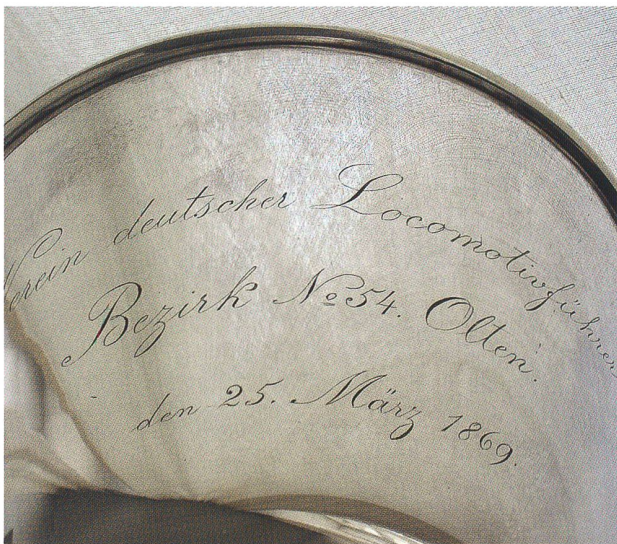 Verein deutscher Locomotivführer
Bezirk No 54. Olten.
den 25. März 1869.